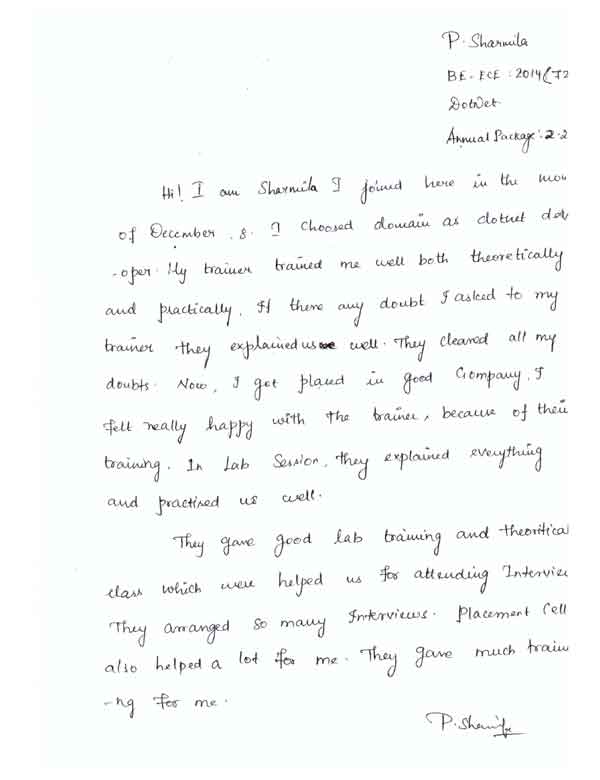 P. Sharmila
BE - ECE : 2014 (72
DotNet
Annual Package : 2.2
Hi! I am Sharmila I joined here in the mon
of December . &. I choosed domain as dotnet dev
-oper. My trainer trained me well both theoretically
and practically. If there any doubt I asked to my
trainer they explained us well. They cleared all my
doubts. Now, I get placed in good Company. I
felt really happy with the trainer, because of their
training. In Lab Session, they explained everything
and practised us well.
They gave good lab training and theoritical
class which were helped us for attending Interview
They arranged so many Interviews. Placement Cell
also helped a lot for me. They gave much train
-ng for me.
P. Sharmila